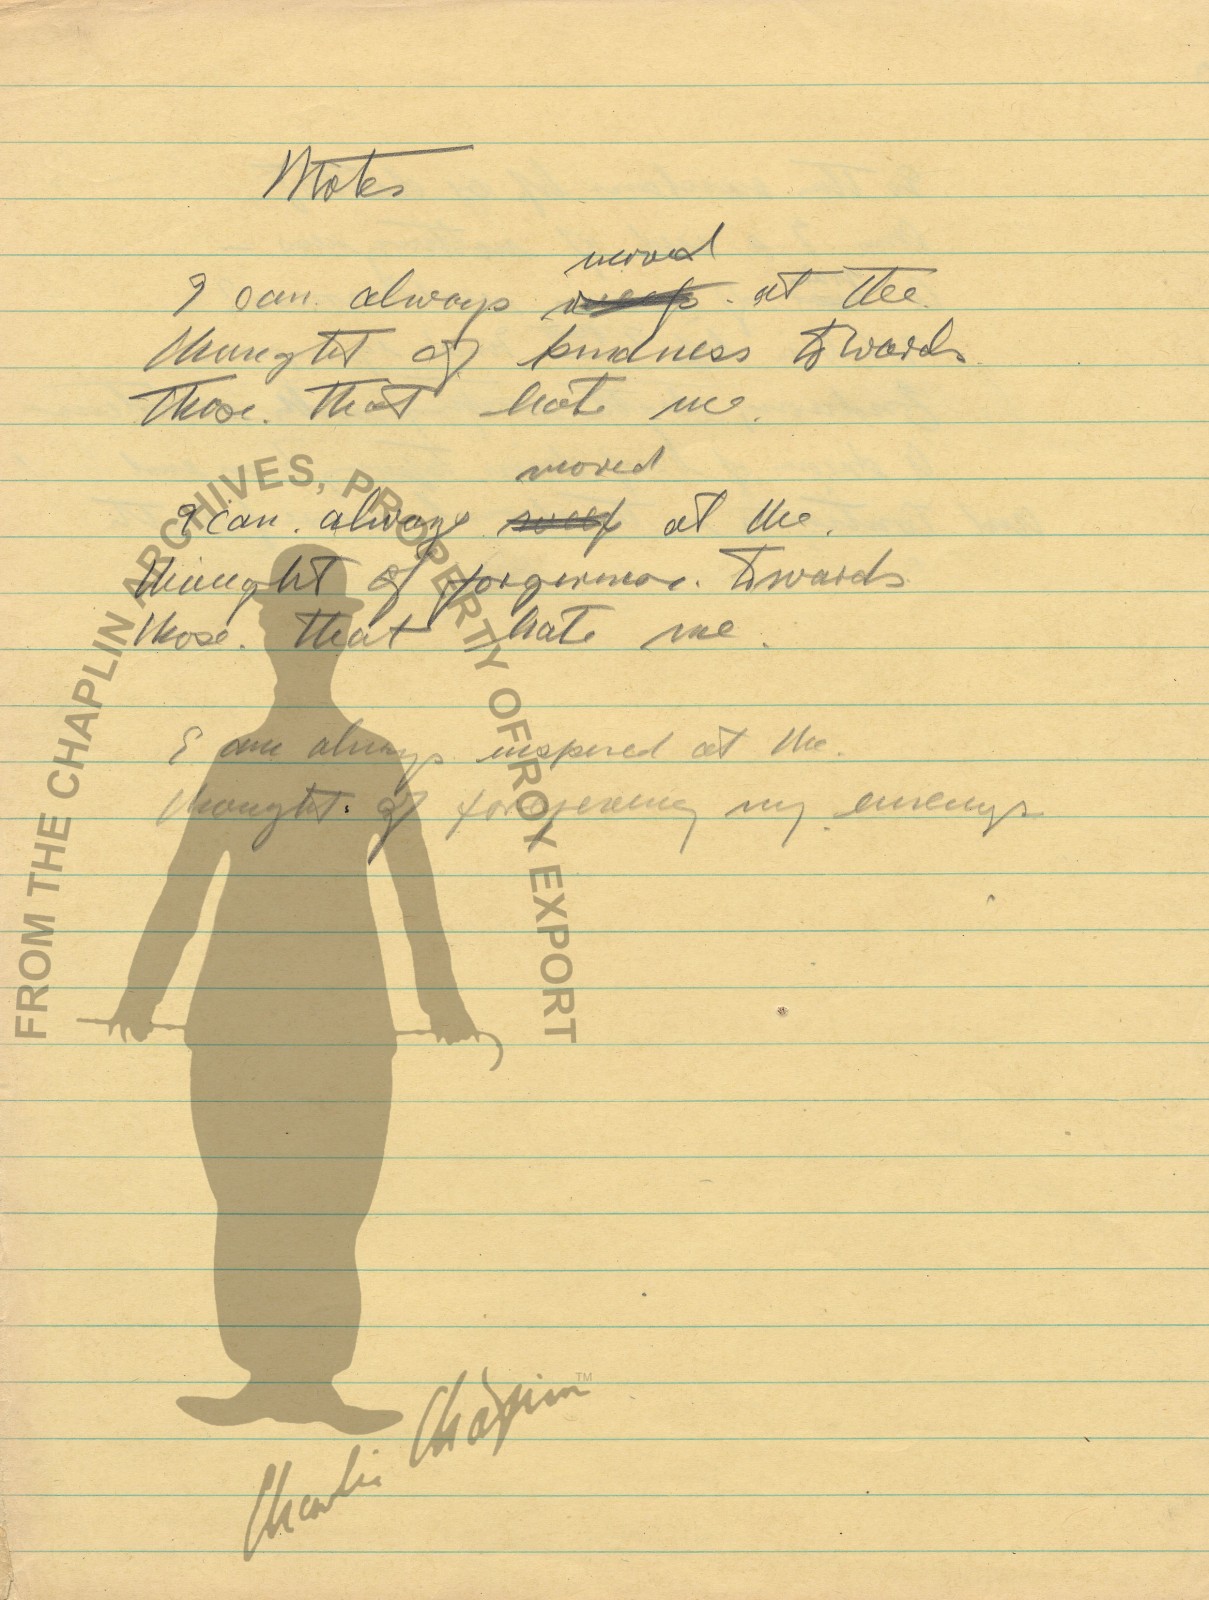 Notes
moved
I can always weep at the
thought of kindness towards
those. that hate me.
moved
I can. always weep at the.
thought of forgiveness. towards
those. that hate me.
I am always inspired at the.
thought of forgiving my enemys
FROM THE CHAPLIN ARCHIVES, PROPERTY OF ROY EXPORT
Charlie Chaplin™